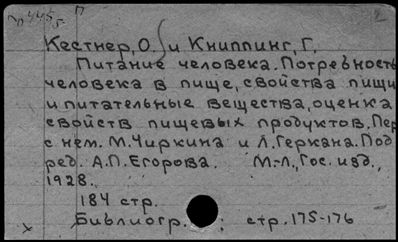 П
Кестнер, О. и Книппинг, Г.
Питание человека. Потребность
человека в пище, свойства пищи
и питательные вещества, оценка
свойств пищевых продуктов. Пер
с нем. М. Чиркина и Л. Геркана. Под
ред. А.П. Егорова. М.-Л., Гос. изд.,
1928.
184 стр.
Библиогр.: стр. 175-176